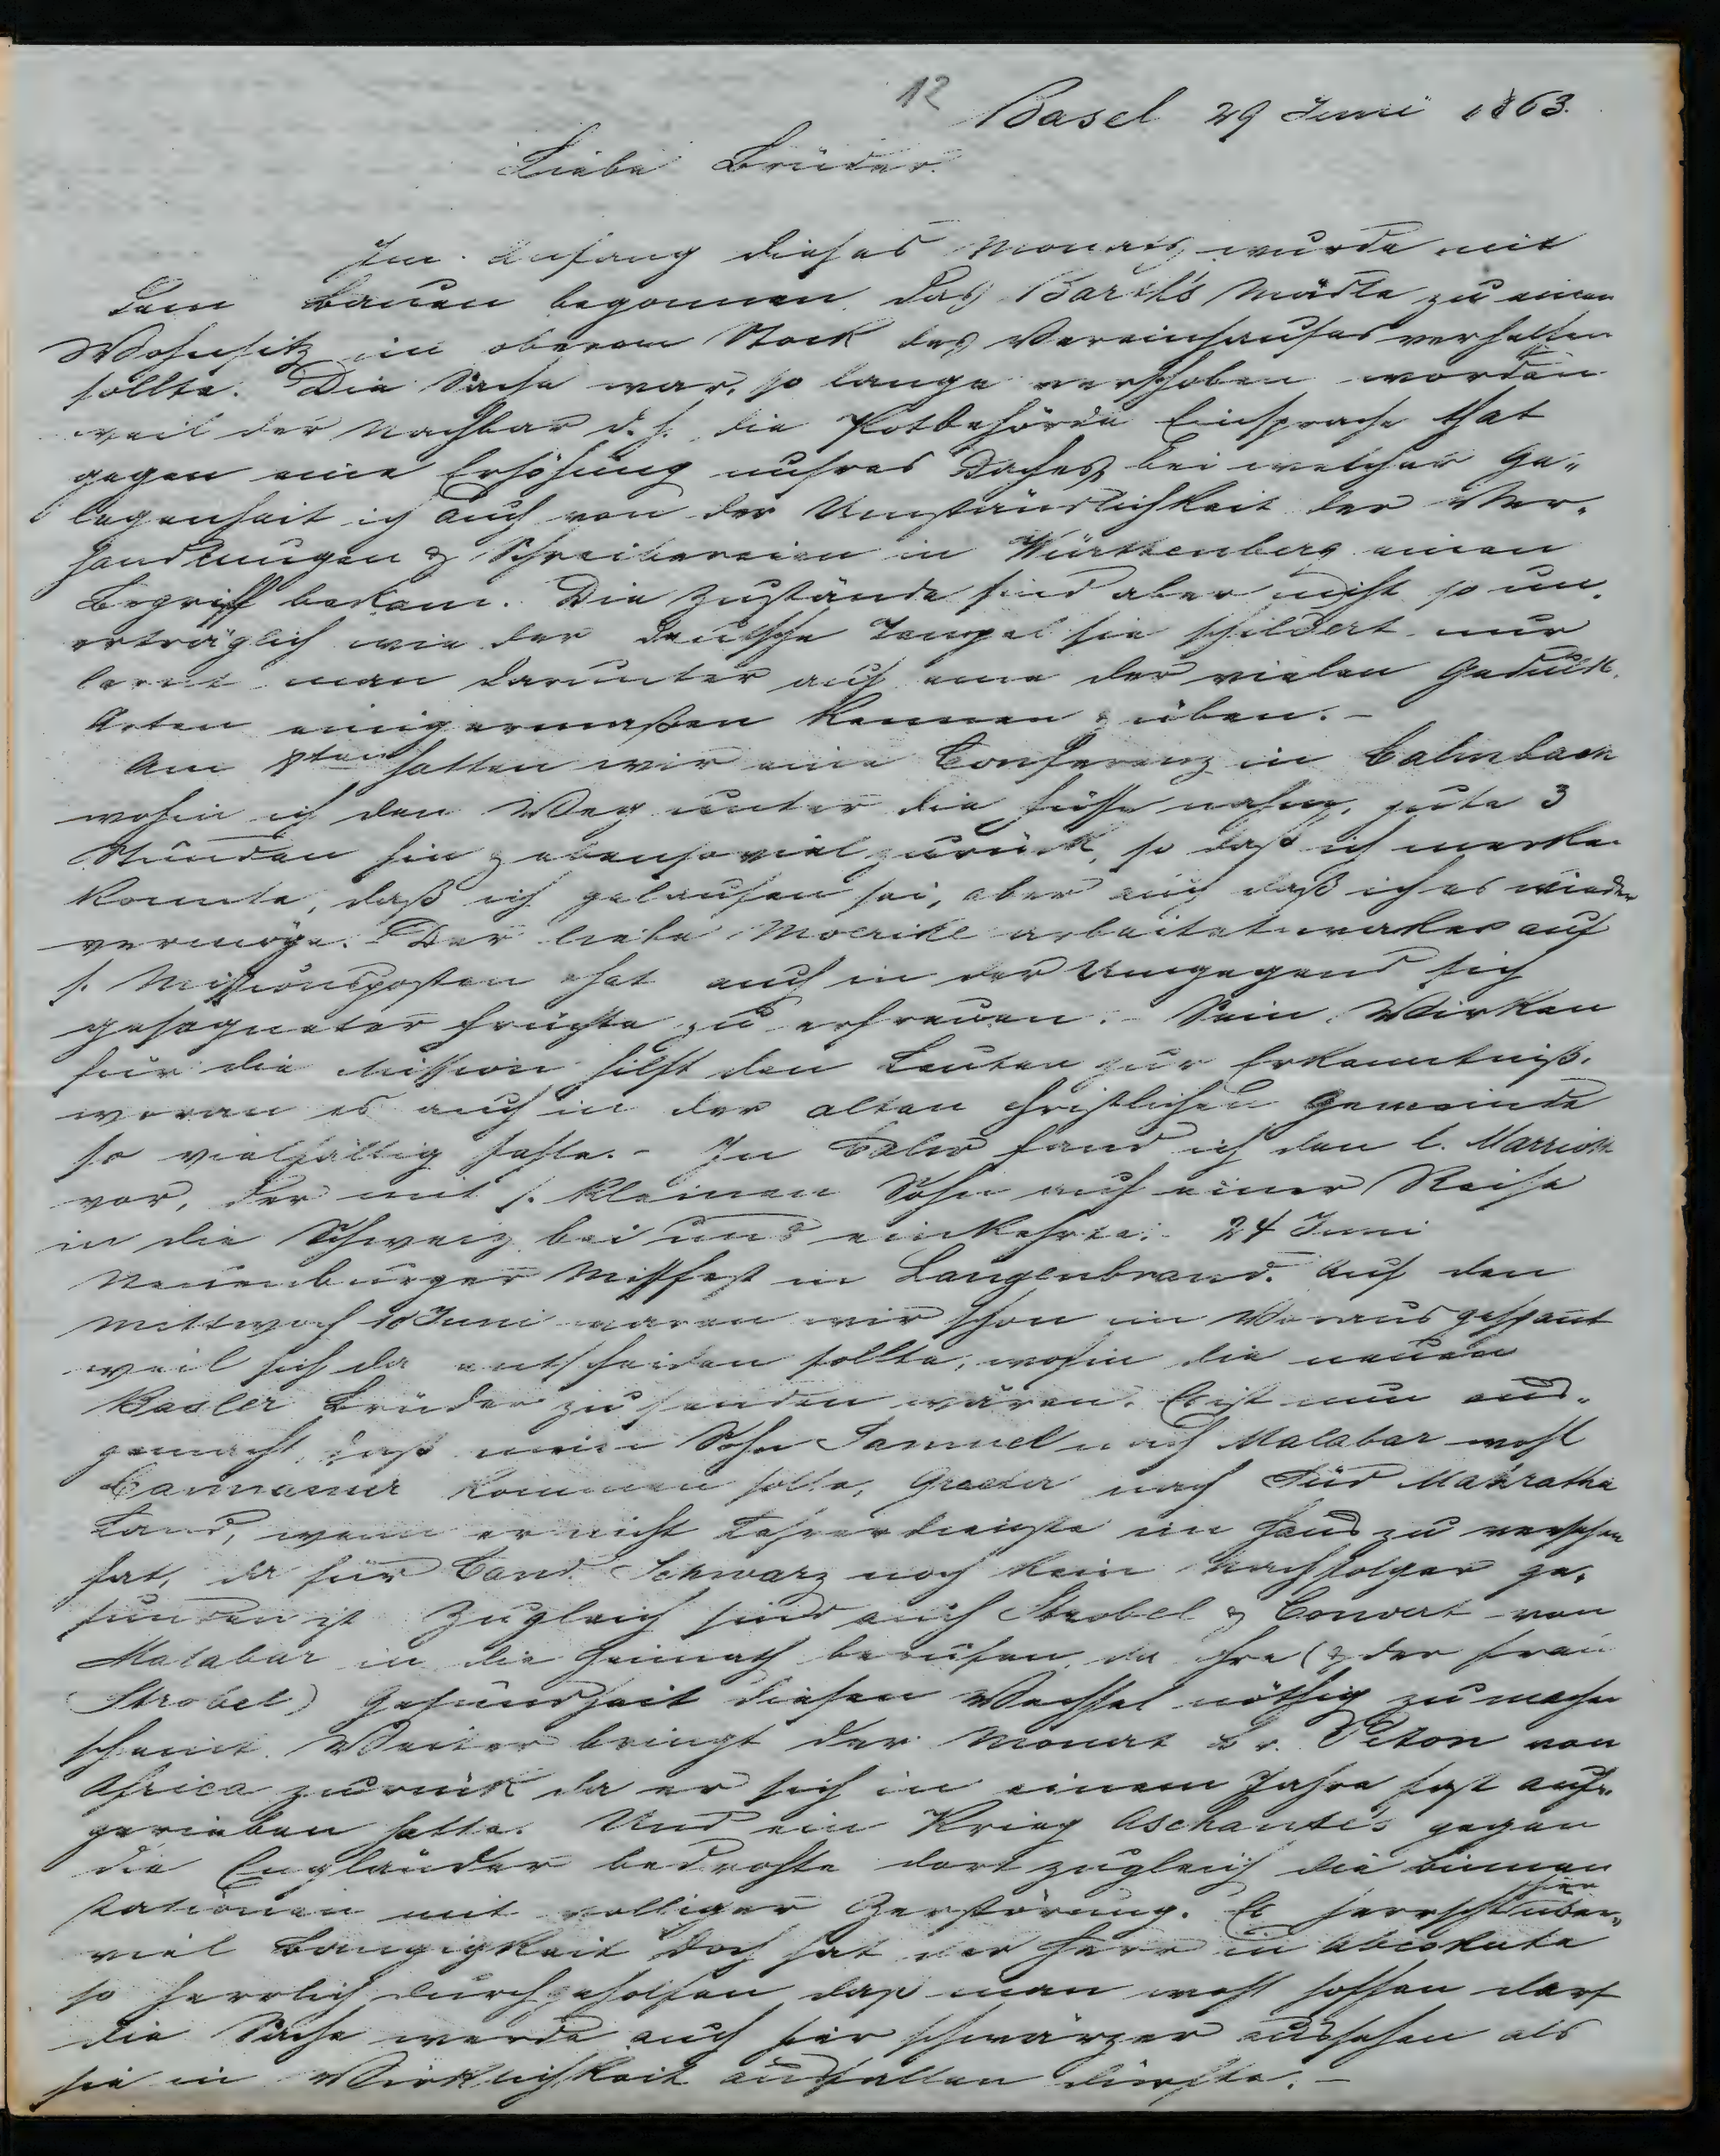 12
Basel 29 Juni 1863.
Liebe Brüder.
Im Anfang dieses Monats wurde mit
dem Bauen begonnen das Barth's Mädle zu einem
Wohnsitz im oberen Stock des Vereinshauses verhelfen
sollte. Die Sache war so lange verschoben worden
weil der Nachbar d. h. die Postbehörde Einsprache that
gegen eine Erhöhung unsres Daches, bei welcher Ge-
legenheit ich auch von der Umständlichkeit der Ver-
handlungen & Schreibereien in Württenberg einen
Begriff bekam. Die Zustände sind aber nicht so un-
erträglich wie der deutsche Tempel sie schildert nur
lernt man darunter auch eine der vielen Geduld-
Arten einigermaßen kennen & üben. -
Am 8ten hatten wir eine Conferenz in Calmbach
wohin ich den Weg unter die Füsse nahm, gute 3
Stunden hin & ebensoviel zurück, so daß ich merken
konnte, daß ich gelaufen sei, aber auch daß ich es wieder
vermöge. Der liebe Moerike arbeitet wacker auf
s. Missionsposten & hat auch in der Umgegend sich
gesegneter Früchte zu erfreuen. - Sein Wirken
für die Mission hilft den Leuten zur Erkenntniß,
woran es auch in der alten christlichen Gemeinde
so vielfältig fehle. - In Calw fand ich den l. Marriott
vor, der mit s. kleinen Sohn auf einer Reise
in die Schweiz bei uns einkehrte. 24 Juni
Neuenbürger Missfest in Langenbrand. Auf den
Mittwoch 10 Juni waren wir schon im Voraus gespannt
weil sich da entscheiden sollte, wohin die neuen
Basler Brüder zu senden wären. Es ist nun aus-
gemacht, daß mein Sohn Samuel nach Malabar wohl
Cannanur kommen solle, Graeter nach Süd Mahratha
Land, wenn er nicht Lehrerdienste im Haus zu versehen
hat, da für Cand. Schwarz noch kein Nachfolger ge-
funden ist. Zugleich sind auch Strobel & Convert von
Malabar in die Heimath berufen, da ihre (& der Frau
Strobel) Gesundheit diesen Wechsel nöthig zu machen
scheint. Weiter bringt der Monat Br. Piton von
Africa zurück da er sich in einem Jahre fast auf-
gerieben hatte. Und ein Krieg Aschante's gegen
die Engländer bedrohte dort zugleich die Binnen
stationen mit völliger Zerstörung. Es herrscht hier
viel Bangigkeit doch hat der Herr in Abeokuta
so herrlich durchgeholfen daß man wohl hoffen darf
die Sache werde auch hier schwärzer aussehen als
sie in Wirklichkeit ausfallen dürfte. -